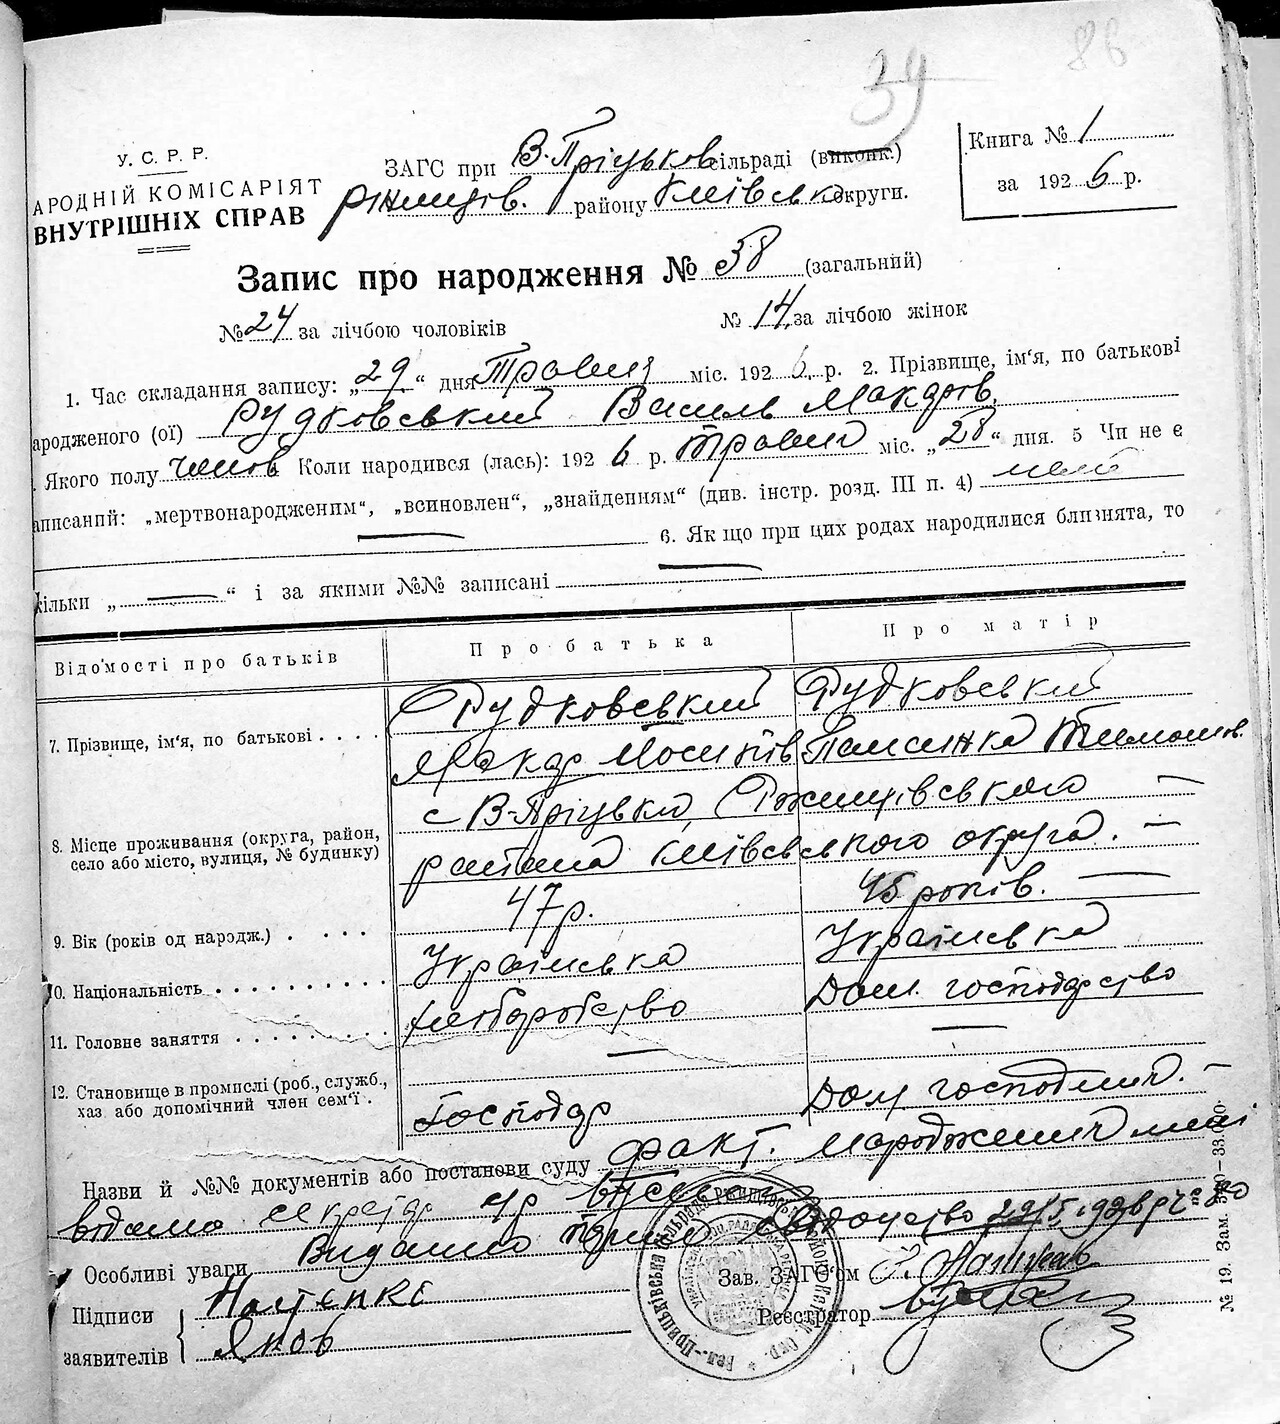 39
86
У. С. Р. Р.
АРОДНІЙ КОМІСАРІЯТ
ВНУТРІШНІХ СПРАВ
ЗАГС при В-Пріцьков сільраді (виконк.)
Ржищів. району Київсько округи.
Книга № 1
за 1926 р.
Запис про народження № 38 (загальний)
№ 24 за лічбою чоловіків
№ 14 за лічбою жінок
1. Час складання запису: „29“ дня Травня міс. 1926 р. 2. Прізвище, ім'я, по батькові
ародженого (ої) Рудковський Василь Макарів.
Якого полу чолов Коли народився (лась): 1926 р. травня міс. „28“ дня. 5 Чи не є
аписаний: „мертвонародженим“, „всиновлен“, „знайденням“ (див. інстр. розд. III п. 4)
— 6. Як що при цих родах народилися близнята, то
кільки „—“ і за якими №№ записані —
Відомості про батьків
Про батька
Про матір
7. Прізвище, ім'я, по батькові . . . .
Рудковський
Макар
Рудковський
Тимошів.
8. Місце проживання (округа, район,
село або місто, вулиця, № будинку)
с В-Пріцьки, Ржищівського —
района Київського округа. —
9. Вік (років од народж.) . . . .
47 р.
45 років. —
10. Національність . . . . . . . . . .
Українська
Українська
11. Головне заняття . . . . . . . .
хліборобство
Дом. господарство
12. Становище в промислі (роб., служб.,
хаз або допомічний член сем'ї .
—
Господар
—
Дом господин. —
Назви й №№ документів або постанови суду факт. народження
відомо секретар
Особливі уваги Видано
Зав. ЗАГС'ом
Підписи
заявителів
Яков
Реєстратор
№ 19. Зам.